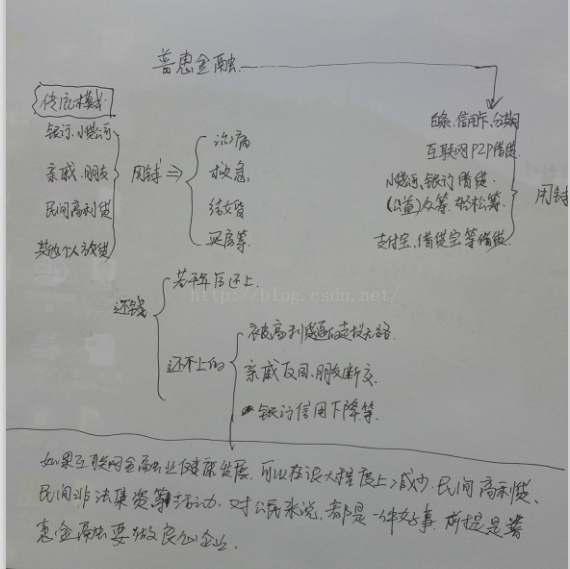 普惠金融
传统模式
银行、小贷公司
亲戚、朋友
民间高利贷
其他个人放贷
用钱⇒
治病
救急
结婚
买房等
白条、信用卡、分期
互联网P2P借贷
小贷公司、银行借贷
(公益)众筹、轻松筹
支付宝、借贷宝等借贷
用钱
还钱
若干年后还上
http://blog.csdn.net/
还不上的
被高利贷逼的走投无路
亲戚反目、朋友断交
银行信用下降等
如果互联网金融业健康发展,可以在很大程度上减少民间高利贷、
民间非法集资等活动,对公民来说,都是一件好事,前提是普
惠金融要做良心企业.